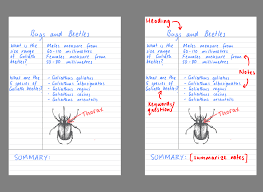 Bugs and Beetles
What is the
size range
of Goliath
beetles?
Males measure from
60-110 millimetres
Females measure from
50-80 millimetres
What are the
5 species of
Goliath beetles?
- Goliathus goliatus
- Goliathus albosignatus
- Goliathus regius
- Goliathus cacicus
- Goliathus orientalis
Thorax
SUMMARY:
Heading
Bugs and Beetles
What is the
size range
of Goliath
beetles?
Males measure from
60-110 millimetres
Females measure from
50-80 millimetres
Notes
What are the
5 species of
Goliath beetles?
- Goliathus goliatus
- Goliathus albosignatus
- Goliathus regius
- Goliathus cacicus
- Goliathus orientalis
Keywords/
questions
Thorax
SUMMARY: [summarize notes]